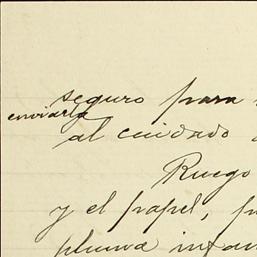 seguro para
enviarla
al cuidado
Ruego
y el papel,
pluma